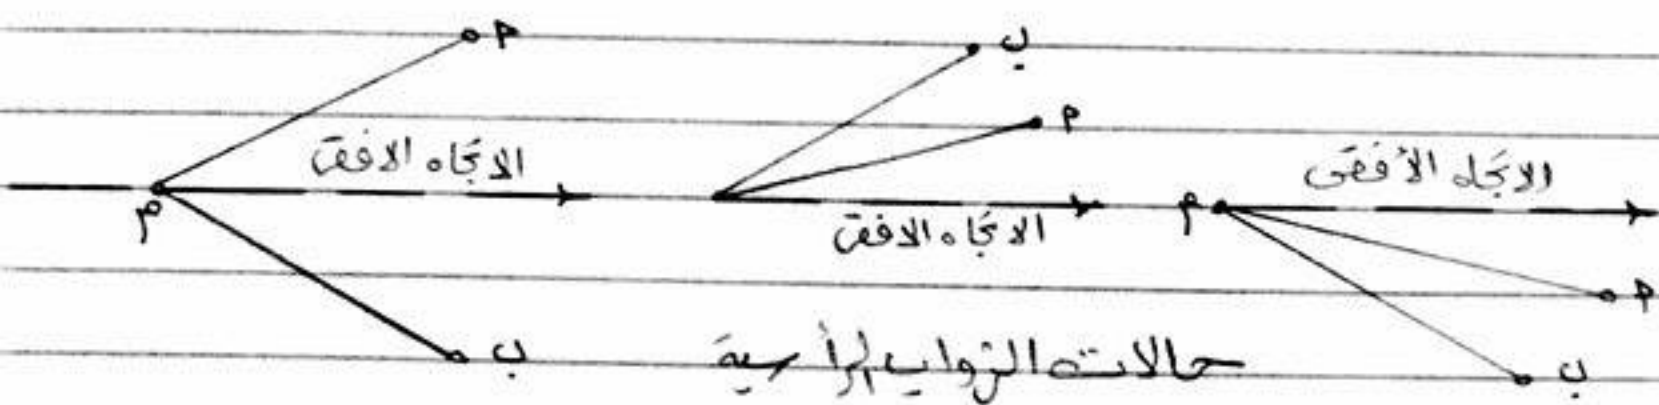 أ
ب
أ
الاتجاه الأفقى
الاتجاه الافقى
م
الاتجاه الافقى
م
أ
ب
ب
حالات الزوايا الرأسية